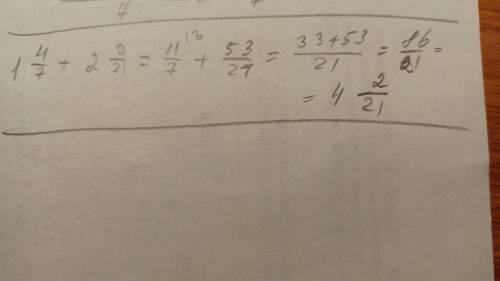 7
1 4/7 + 2 3/21 = 11/7 ⁽³ + 53/21 = 33+53/21 = 86/21 =
= 4 2/21